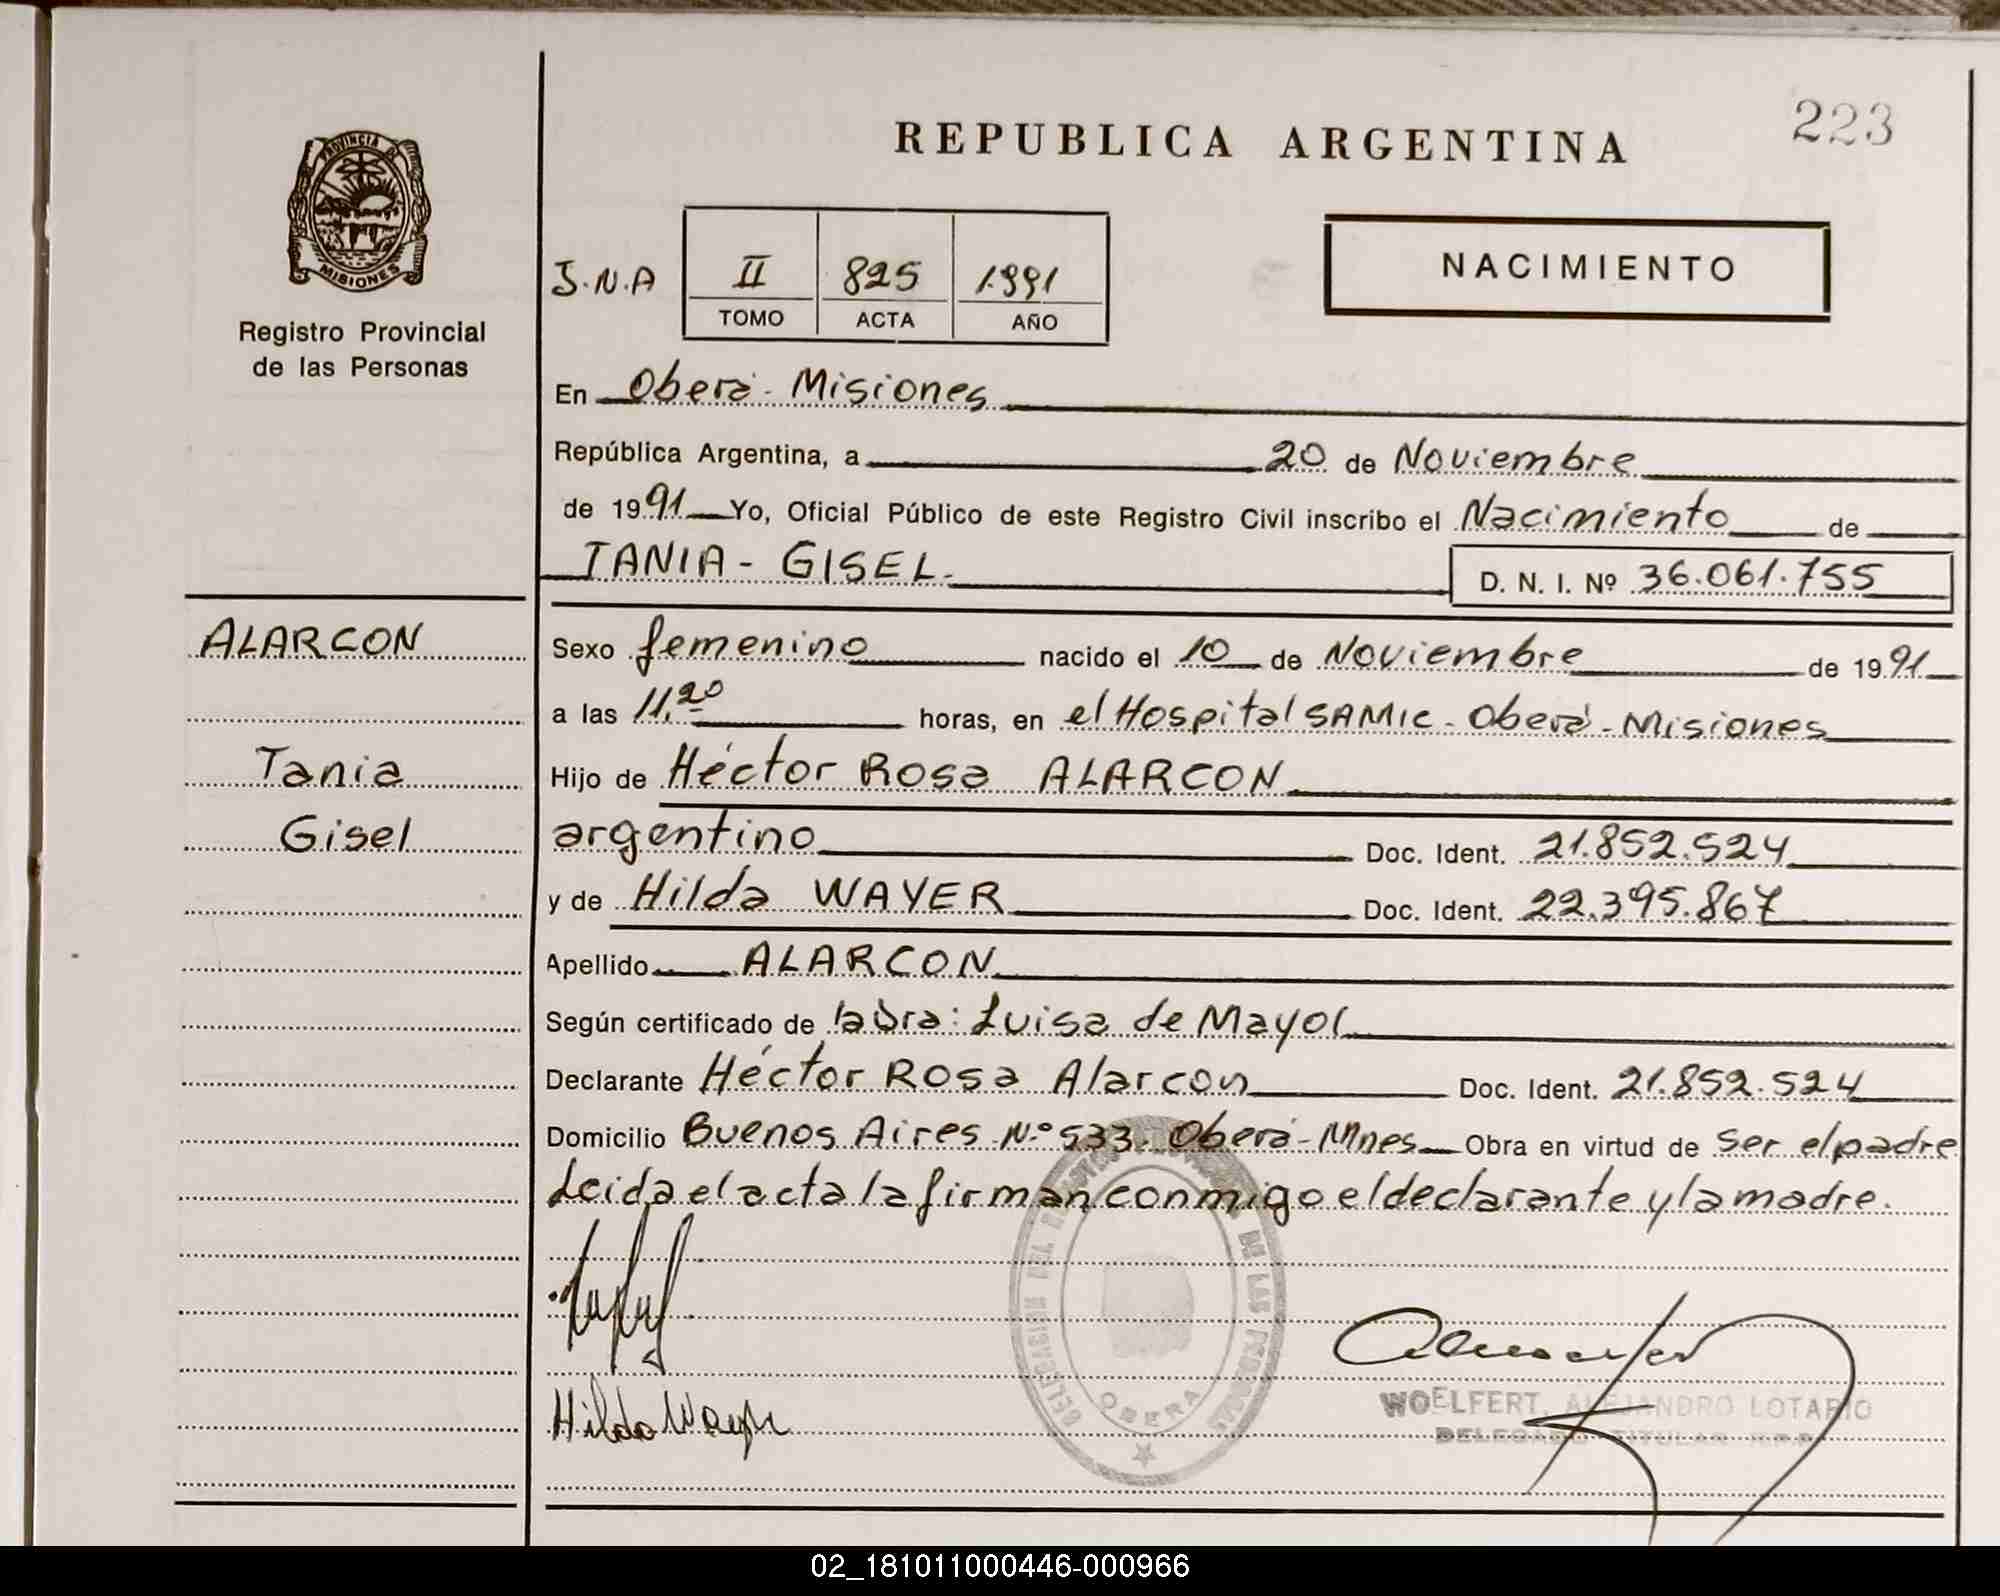 223
REPUBLICA ARGENTINA
PROVINCIA DE
MISIONES
Registro Provincial
de las Personas
J.N.A II 825 1.991
TOMO ACTA AÑO
NACIMIENTO
En Oberá - Misiones
República Argentina, a 20 de Noviembre
de 1991 Yo, Oficial Público de este Registro Civil inscribo el Nacimiento de
TANIA - GISEL.
D. N. I. Nº 36.061.755
ALARCON
Tania
Gisel
Sexo femenino nacido el 10 de Noviembre de 1991
a las 11,20 horas, en el Hospital SAMIC - Oberá - Misiones
Hijo de Héctor Rosa ALARCON
argentino Doc. Ident. 21.852.524
y de Hilda WAYER Doc. Ident. 22.395.867
Apellido ALARCON
Según certificado de la Dra: Luisa de Mayol
Declarante Héctor Rosa Alarcon Doc. Ident. 21.852.524
Domicilio Buenos Aires N.º 533. Oberá - Mnes Obra en virtud de ser el padre
Leida el acta la firman conmigo el declarante y la madre.
DE LAS PERSONAS
OBERA
Hilda Wayer
WOELFERT, ALEJANDRO LOTARIO
DELEGADO TITULAR R.P.P.
02_181011000446-000966